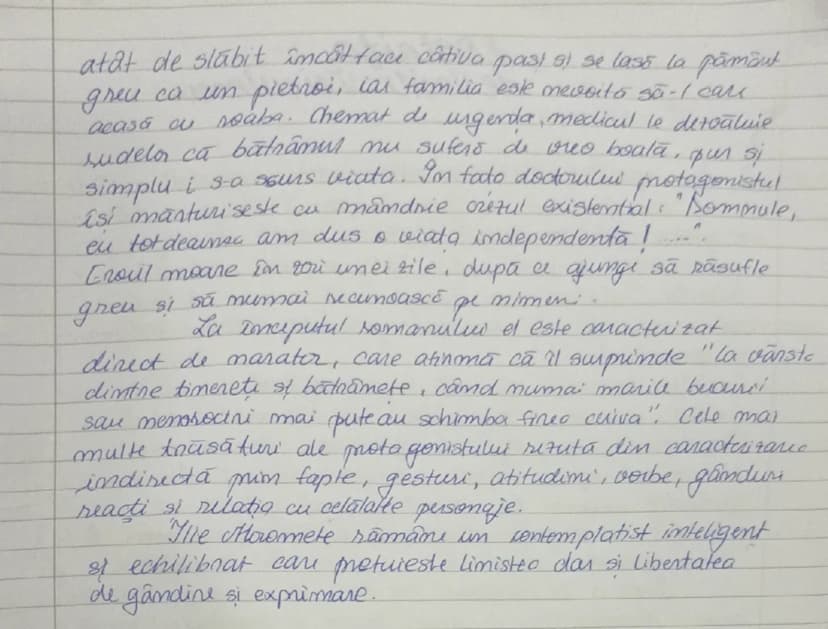 atât de slăbit încât face câtiva pasi si se lasă la pământ
greu ca un pietroi, iar familia este nevoită să-l care
acasă cu roaba. Chemat de urgență, medicul le dezvăluie
rudelor că bătrânul nu suferă de vreo boală, pur și
simplu i s-a scurs viata. În fata doctorului protagonistul
își mărturiseste cu mândrie crezul existential: "Domnule,
eu totdeauna am dus o viață independentă! ....".
Eroul moare în zorii unei zile, după ce ajunge să răsufle
greu și să numai recunoască pe nimeni.
La începutul romanului el este caracterizat
direct de narator, care afirmă că îl surprinde "la vârsta
dintre tinerețe și bătrânețe, când numai marile bucurii
sau nenorociri mai puteau schimba firea cuiva". Cele mai
multe trăsături ale protagonistului rezultă din caracterizarea
indirectă prin fapte, gesturi, atitudini, vorbe, gânduri
reacți si relația cu celălalte personaje.
Ilie Moromete rămâne un contemplatist inteligent
și echilibrat care pretuieste linistea dar și libertatea
de gândire și exprimare.